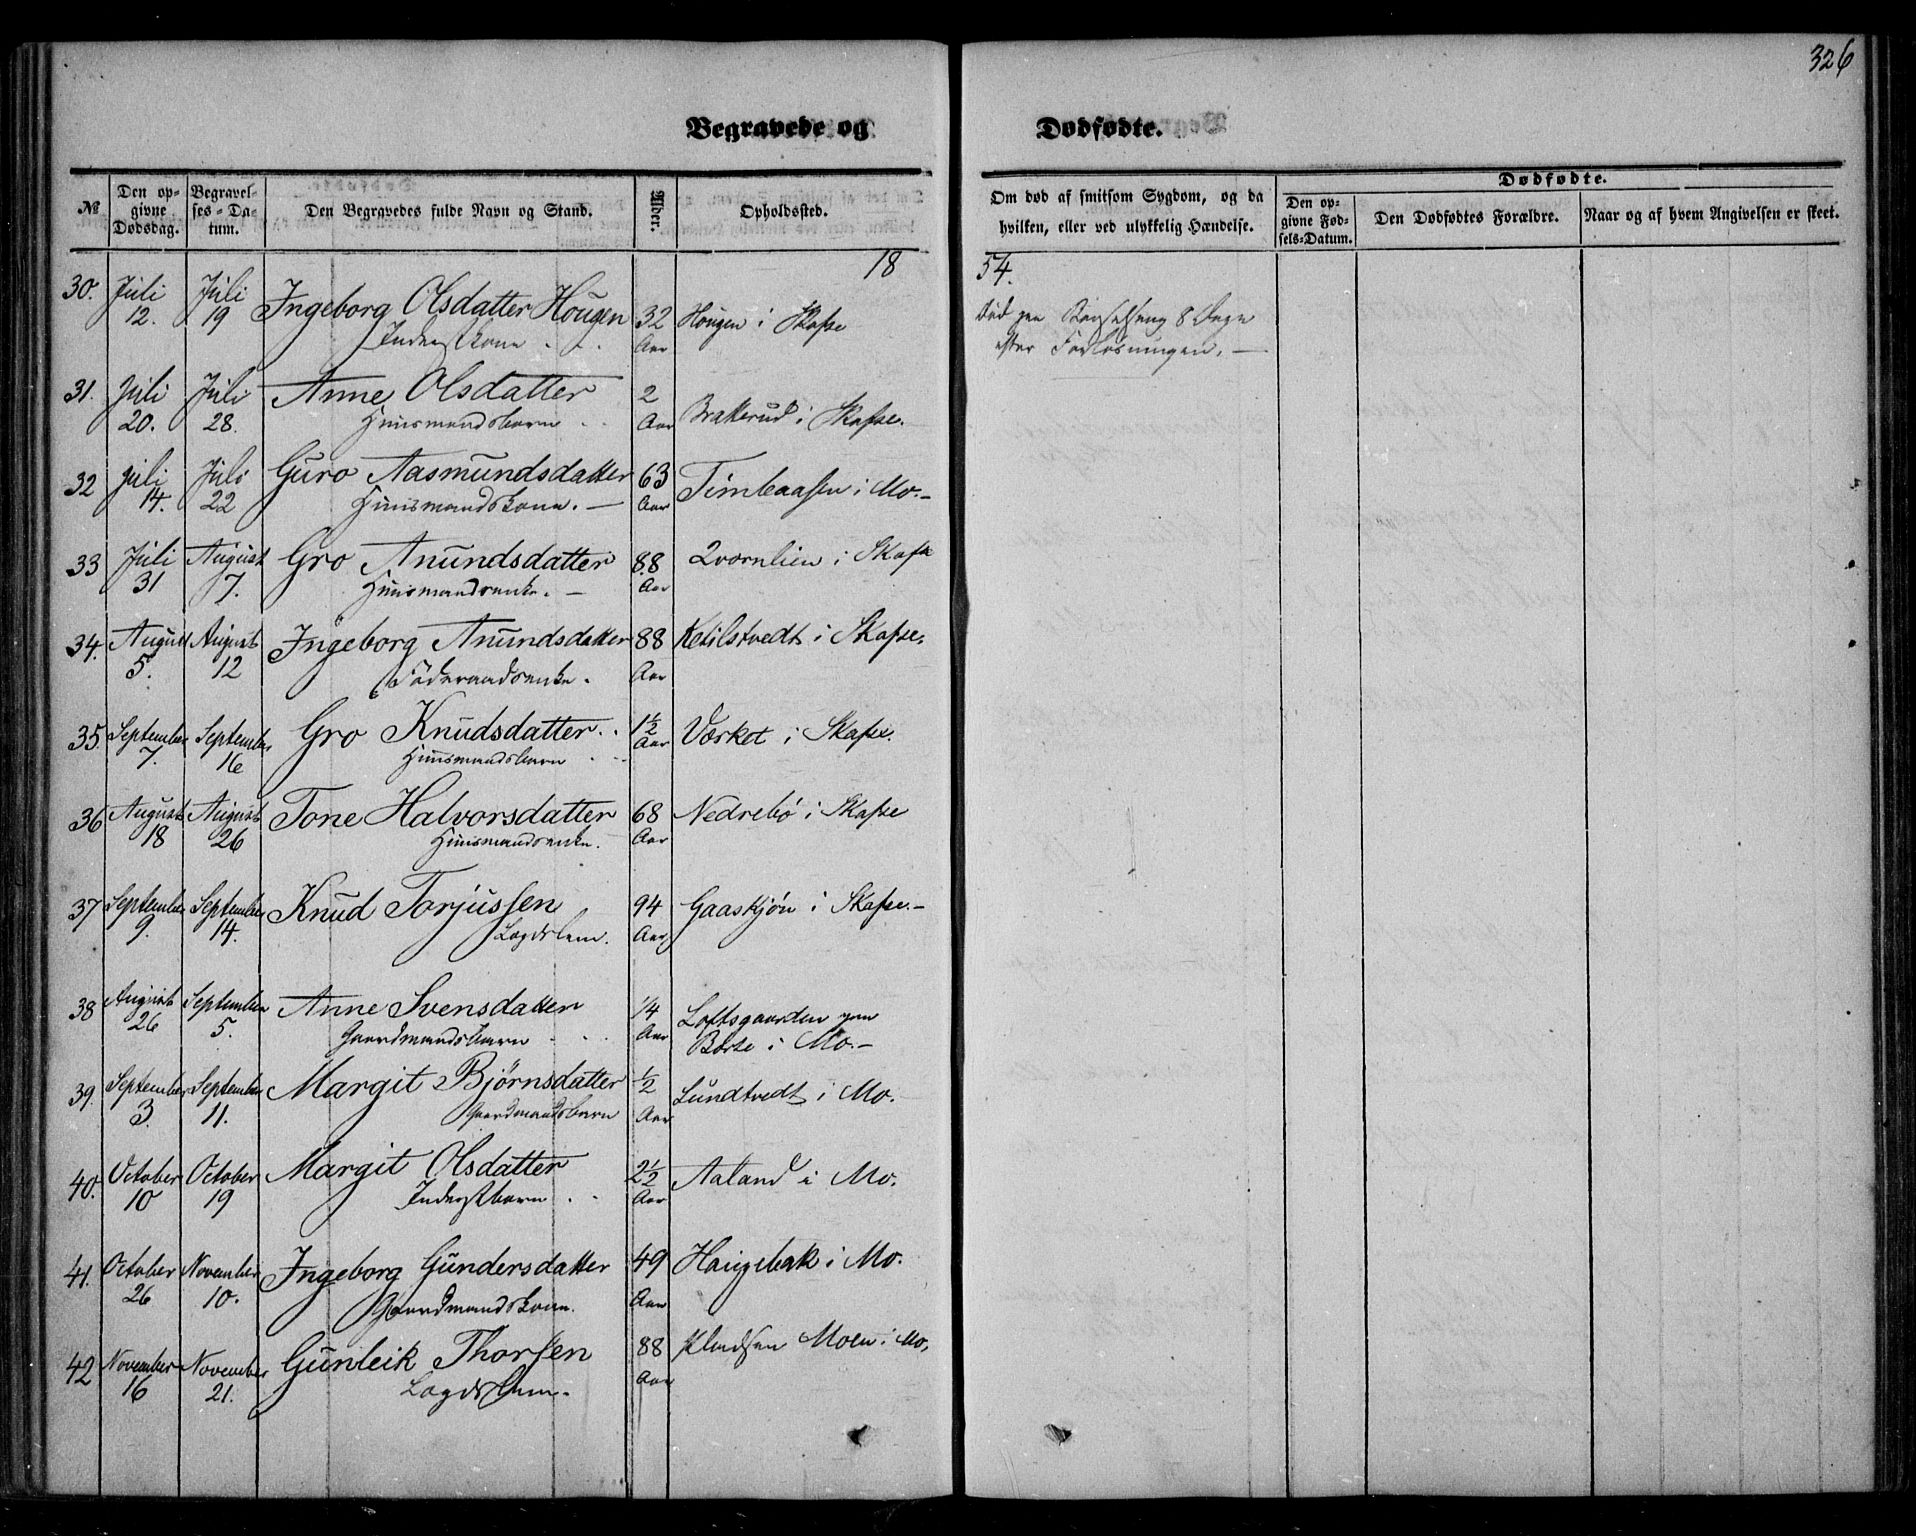 326
Begravede og Dødfødte.
№
Den op-
givne
Dødsdag.
Begravel-
ses-Da-
tum.
Den Begravedes fulde Navn og Stand.
Alder.
Opholdssted.
Om død af smitsom Sygdom, og da
hvilken, eller ved ulykkelig Hændelse.
Dødfødte.
Den op-
givne Fød-
sels-Datum.
Den Dødfødtes Forældre.
Naar og af hvem Angivelsen er skeet.
18 54.
30. Juli 12. Juli 19 Ingeborg Olsdatter Hougen 32 Hougen i Skafse
Inderstkone Aar
Død paa Barselseng 8 Dage
efter Forløsningen.
31. Juli 20. Juli 28. Anne Olsdatter 2 Brakerud i Skafse.
Huusmandsbarn Aar
32 Juli 14. Juli 22 Guro Aasmundsdatter 63 Timbaasen i Mo.
Huusmandskone. Aar
33 Juli 31 August 7. Gro Anundsdatter 88 Qvornlien i Skafse
Huusmandsenke. Aar
34. August 5. August 12 Ingeborg Anundsdatter 88 Ketilstvedt i Skafse.
Føderaadsenke. Aar
35. September 7. September 16 Gro Knudsdatter 1½ Værket i Skafse.
Huusmandsbarn Aar
36 August 18 August 26 Tone Halvorsdatter 68 Nedrebø i Skafse
Huusmandsenke. Aar
37 September 9. September 14. Knud Torjussen 94 Gaaskjøn i Skafse.
Lægdslem. Aar
38 August 26 September 5. Anne Svensdatter ¼ Loftsgaarden paa
Gaardmandsbarn Aar Børte i Mo.
39. September 3. September 11. Margit Bjørnsdatter ½ Lundtvedt i Mo.
Gaardmandsbarn Aar
40. October 10 October 19 Margit Olsdatter 2½ Aaland i Mo.
Inderstbarn Aar
41. October 26 November 10. Ingeborg Gundersdatter 49 i Mo.
Gaardmandskone. Aar
42 November 16 November 21. Gunleik Thorsen 88 Moen i Mo.
Lægdslem. Aar